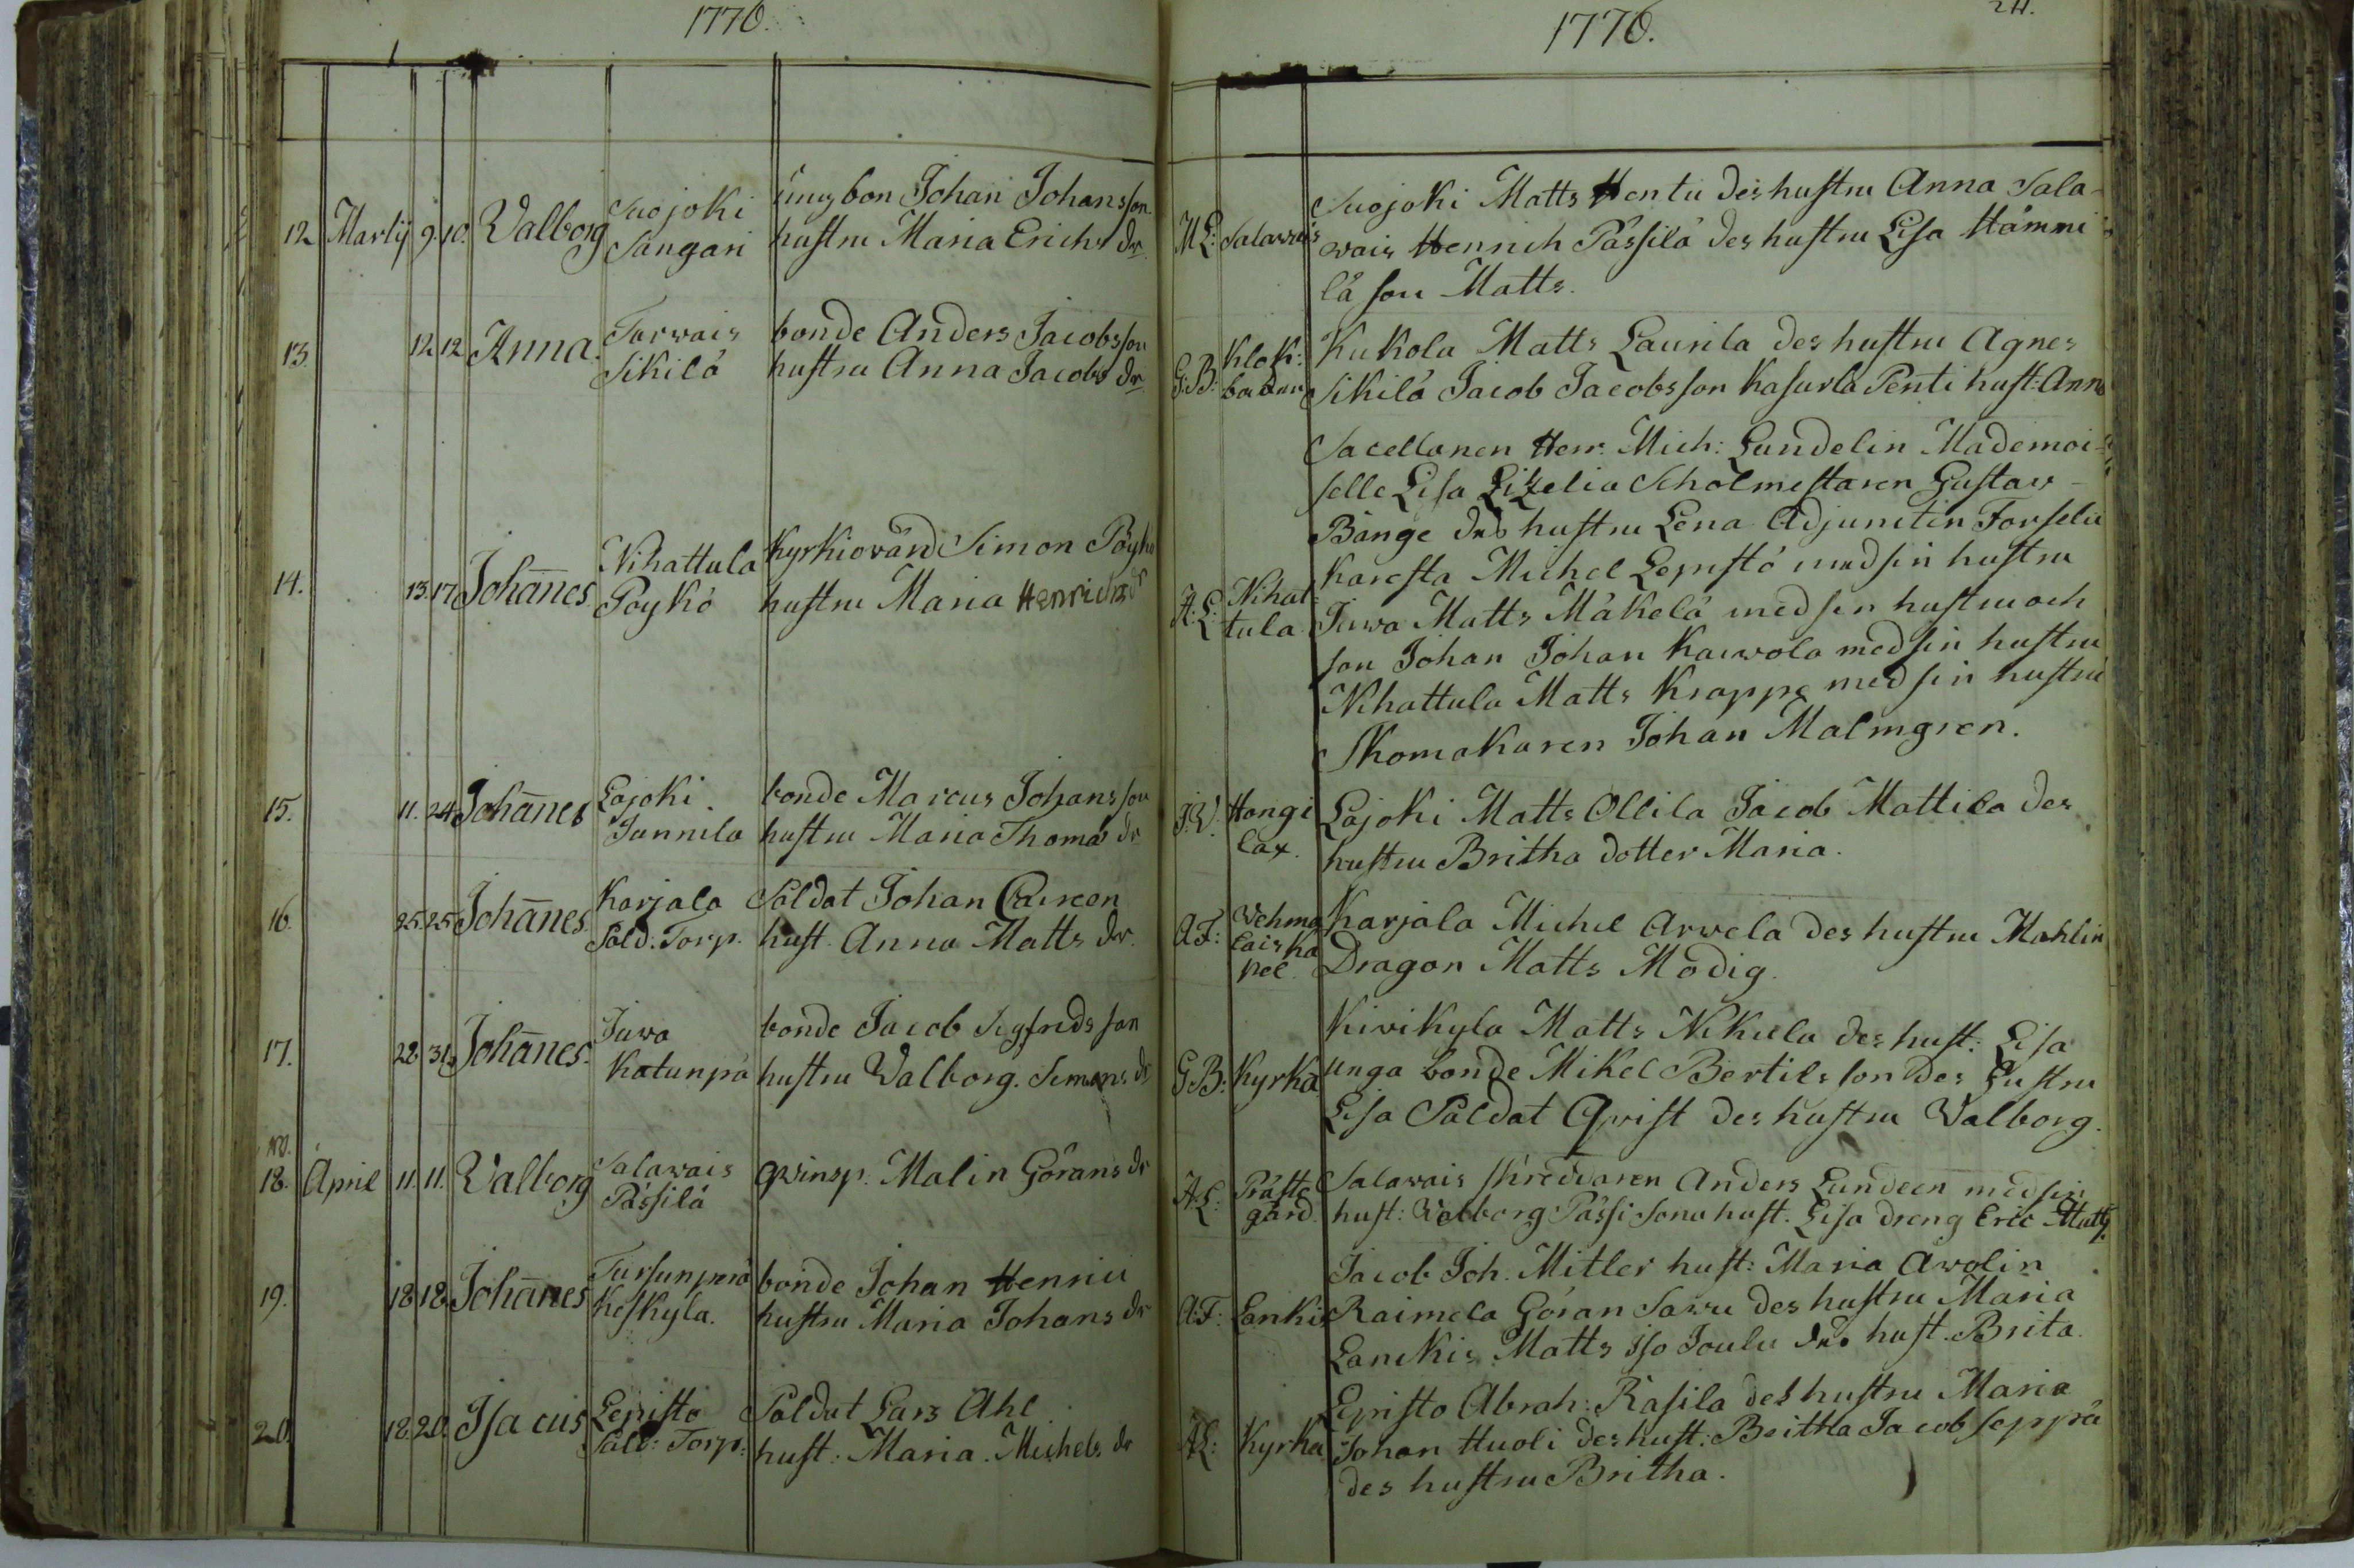 1776.
12 Martij 9. 10. Valborg Suojoki ung bon Johan Johansson
Sangari hustru Maria Erichs dr
13. 12 12 Anna. Tarwais bonde Anders Jacobsson
Sikilä hustru Anna Jacobs dr
14. 13. 17 Johañes. Nihattula Kyrkiovärd Simon Pöykö
Poykö hustru Maria Henrichs dr
15. 11. 24 Johañes Lajoki. bonde Marcus Johansson
Junnila hustru Maria Thomas dr
16. 25. 25 Johañes. Karjala Soldat Johan
Sold. Torp. hust. Anna Matts dr.
17. 28 31. Johañes. Juva bonde Jacob Sigfredsson
Katunpä hustru Valborg. Simons dr
18. April 11. 11. Valborg Salavais Qvinsp. Malin Görans dr
Pässilä
19. 18 18 Johañes Tursunperä bonde Johan Henrici
Keskyla. hustru Maria Johans dr
20. 18. 20. Isacus Lepistö Soldat Lars Ahl
Sold: Torp: hust: Maria. Michels dr
1776. 24.
M L: Salavais Suojoki Matts Hentu des hustru Anna Sala-
vais Henrich Pässilä des hustru Lisa Hämmi
lä son Matts.
G: B: Klok: Kukola Matts Laurila des hustru Agnes
Sikilä Jacob Jacobsson Kasurla Penti hust: Anna
Sacellanen Herr. Mich: Lundelin Mademoi-
selle Lisa Lizelia Scholmestaren Gustav
Bånge des hustru Lena Adjunctin Forselia
Karesta Michel Lepistö med sin hustru
A: L: Nihat Juva Matts Mäkelä med sin hustru och
tula. son Johan Johan Kaivola med sin hustru
Nihattula Matts Krappe med sin hustru
Skomakaren Johan Malmgren.
J. V. Hangi Lajoki Matts Ollila Jacob Mattila des
lax. hustru Britha dotter Maria.
A F: Vehma Karjala Michel Arvela des hustru Mahlin
lais ka Dragon Matts Modig.
pel.
Kivikyla Matts Nikula des hust: Lisa
G. B: Kyrka unga bonde Mikel Bertilsson des hustru
Lisa Soldat Qvist des hustru Valborg.
A L: Präste Salavais skredaren Anders Lundeen med sin
gård. hust: Valborg Pässi Sona hust. Lisa dreng Eric Matts.
Jacob Joh. Mitler hust: Maria Avolin
A. F: Lankis Raimela Göran Savu des hustru Maria
Lanckis Matts iso Joulu des hust. Brita.
Lepisto Abrah: Rasila des hustru Maria
A L: Kyrka Johan Huoli des hust: Britha Jacob seppä
des hustru Britha.